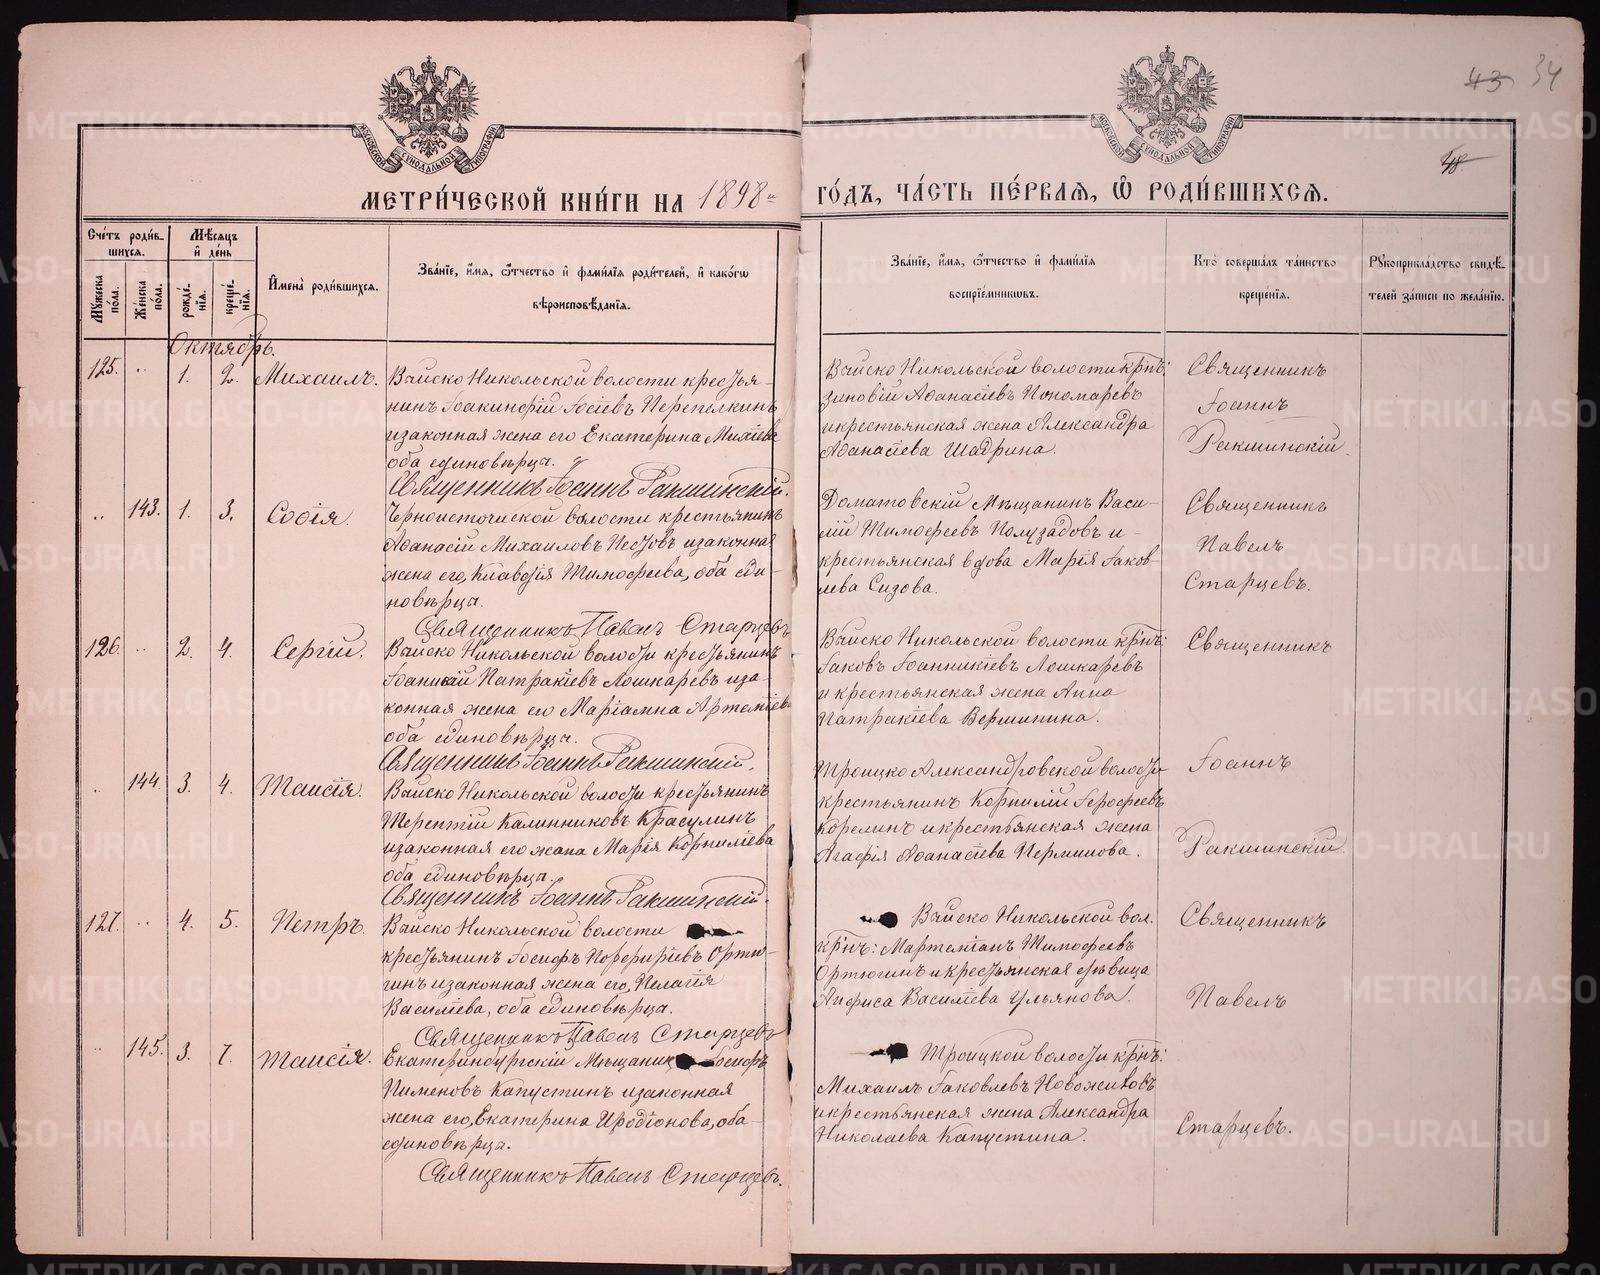 43 34
МЕТРИ́ЧЕСКОЙ КНИ́ГИ НА 1898 й ГО́ДЪ, ЧА́СТЬ ПЕ́РВАѦ, Ѡ҆ РОДИ́ВШИХСѦ.
Сче́тъ роди́в-
шихсѧ.
Мꙋ́жеска по́ла.
Же́нска по́ла.
Мѣ́сѧцъ
и҆ де́нь
рожде́-
нїѧ.
креще́-
нїѧ.
И҆мена̀ роди́вшихсѧ.
Зва́нїе, и҆́мѧ, ѻ҆́тчество и҆ фами́лїѧ роди́телей, и҆ како́гѡ
вѣроисповѣ́данїѧ.
Зва́нїе, и҆́мѧ, ѻ҆́тчество и҆ фами́лїѧ
воспрїе́мникѡвъ.
Кто̀ соверша́лъ та́инство
креще́нїѧ.
Рꙋкоприкла́дство свидѣ́-
телей за́писи по жела́нїю.
Октябрь.
125. " 1. 2. Михаилъ.
Выйско Никольской волости крестья-
нинъ Іоакинфій Іосіевъ Перепелкинъ
и законная жена его Екатерина Михѣева
оба единовѣрца.
Священникъ Іоаннъ Ракшинскій.
Выйско Никольской волости крнъ:
Зиновій Аѳанасіевъ Пономаревъ
и крестьянская жена Александра
Аѳанасіева Шадрина.
Священникъ
Іоаннъ
Ракшинскій.
" 143. 1. 3. Софія.
Черноисточинской волости крестьянинъ
Аѳанасій Михаиловъ и законная
жена его, Клавдія Тимофеева, оба еди-
новѣрца.
Священникъ Павелъ Старцевъ
Долматовскій Мѣщанинъ Васи-
лій Тимофеевъ Полузадовъ и
крестьянская вдова Марія Іаков-
лева Сизова.
Священникъ
Павелъ
Старцевъ.
126. " 2. 4. Сергій.
Выйско Никольской волости крестьянинъ
Іоаникій Патракіевъ Лошкаревъ и за-
конная жена его Маріамна Артеміева
оба единовѣрца.
Священникъ Іоаннъ Ракшинскій.
Выйско Никольской волости крнъ:
Іаковъ Іоанникіевъ Лошкаревъ
и крестьянская жена Анна
Патракіева Вершинина.
Священникъ
" 144. 3. 4. Таисія.
Выйско Никольской волости крестьянинъ
Терентій Калинниковъ Красулинъ
и законная его жена Марія Корниліева
оба единовѣрца.
Священникъ Іоаннъ Ракшинскій.
Троицко Александровской волости
крестьянинъ Корнилій Іерофеевъ
Корелинъ и крестьянская жена
Агафія Аѳанасіева Перминова.
Іоаннъ
Ракшинскій.
127. " 4. 5. Петръ.
Выйско Никольской волости
крестьянинъ Іосифъ Порфиріевъ Ортю-
гинъ и законная жена его, Пелагія
Василіева, оба единовѣрца.
Священникъ Павелъ Старцевъ
Выйско Никольской вол.
крнъ: Мартеміанъ Тимофеевъ
Ортюгинъ и крестьянская дѣвица
Анфиса Василіева Ульянова.
Священникъ
Павелъ
" 145. 3. 7. Таисія.
Екатеринбургскій Мѣщанинъ Іосифъ
Пименовъ Капустинъ и законная
жена его, Екатерина Иродіонова, оба
единовѣрца.
Священникъ Павелъ Старцевъ.
Троицкой волости крнъ:
Михаилъ Іаковлевъ Новожиловъ
и крестьянская жена Александра
Николаева Капустина.
Старцевъ.
METRIKI.GASO-URAL.RU